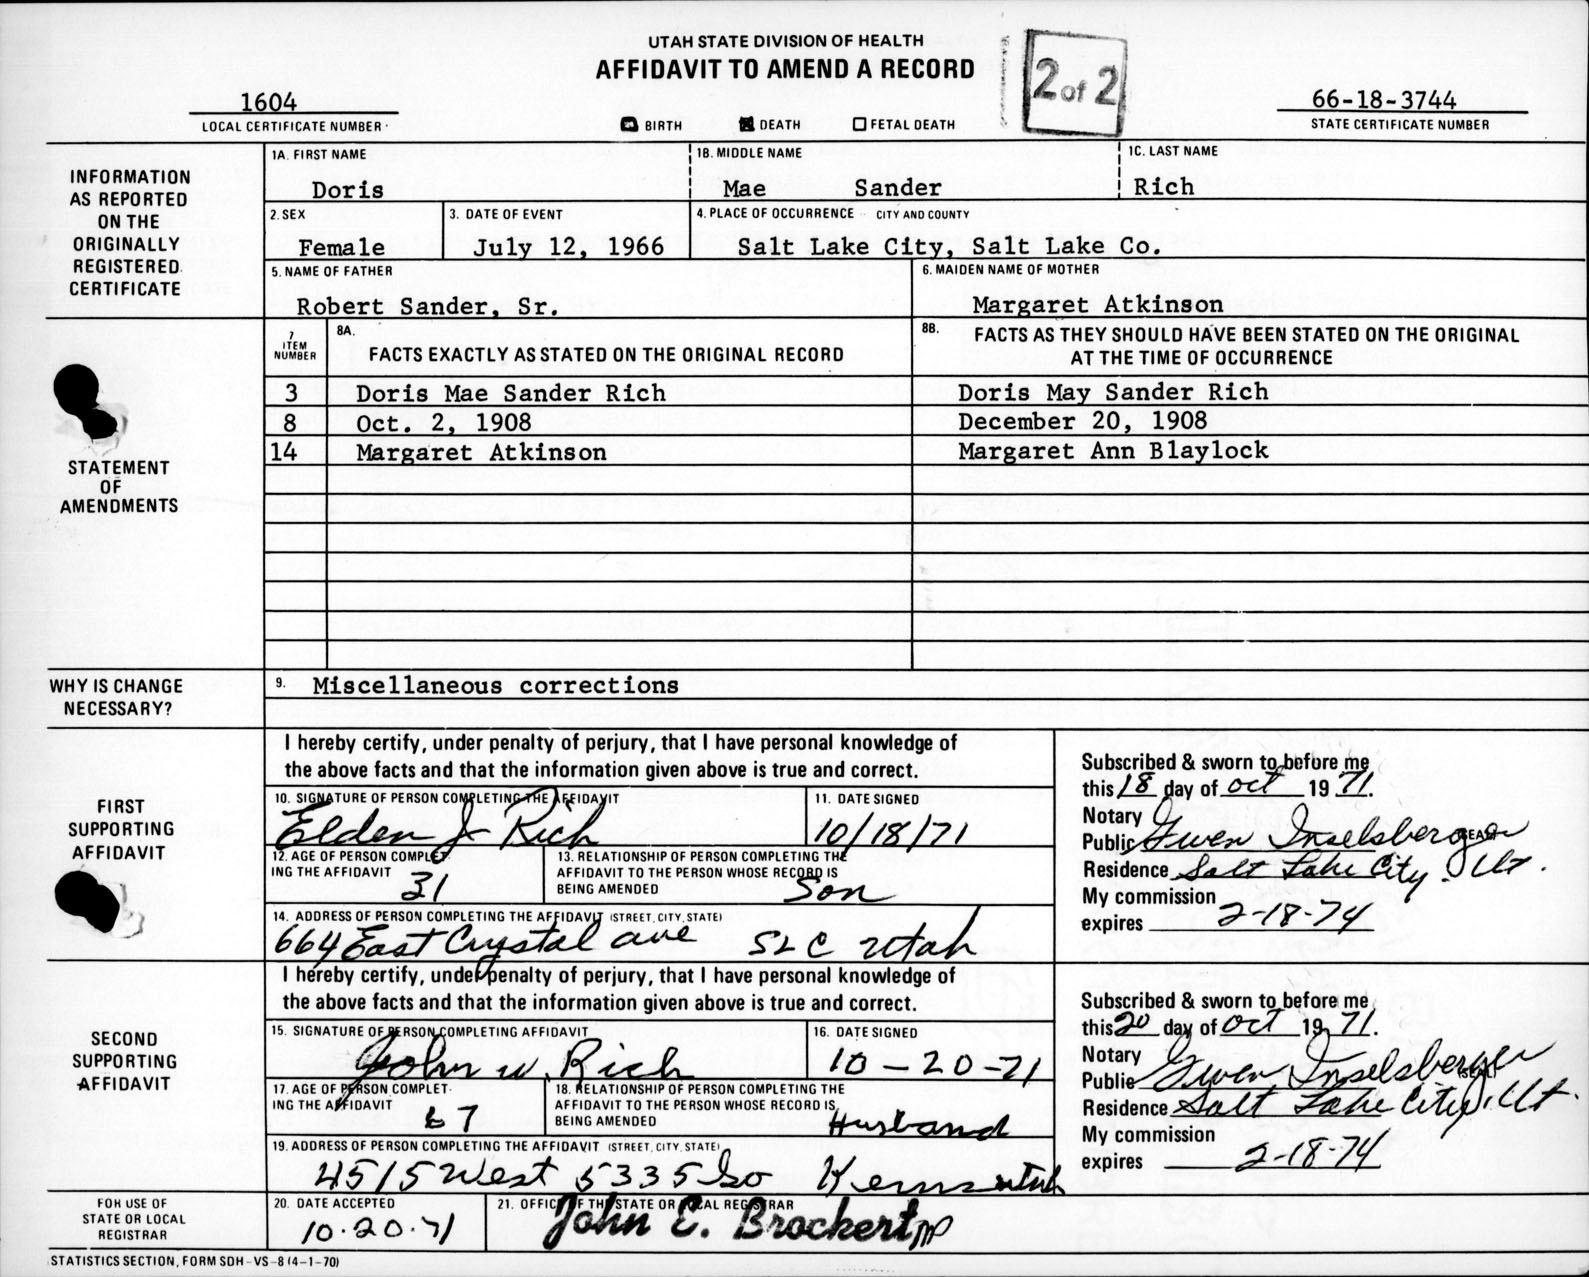 UTAH STATE DIVISION OF HEALTH
AFFIDAVIT TO AMEND A RECORD
2 of 2
1604
LOCAL CERTIFICATE NUMBER
66-18-3744
STATE CERTIFICATE NUMBER
BIRTH DEATH FETAL DEATH
INFORMATION
AS REPORTED
ON THE
ORIGINALLY
REGISTERED
CERTIFICATE
1A. FIRST NAME 1B. MIDDLE NAME 1C. LAST NAME
Doris Mae Sander Rich
2. SEX 3. DATE OF EVENT 4. PLACE OF OCCURRENCE CITY AND COUNTY
Female July 12, 1966 Salt Lake City, Salt Lake Co.
5. NAME OF FATHER 6. MAIDEN NAME OF MOTHER
Robert Sander, Sr. Margaret Atkinson
STATEMENT
OF
AMENDMENTS
7
ITEM
NUMBER
8A.
FACTS EXACTLY AS STATED ON THE ORIGINAL RECORD
8B. FACTS AS THEY SHOULD HAVE BEEN STATED ON THE ORIGINAL
AT THE TIME OF OCCURRENCE
3 Doris Mae Sander Rich Doris May Sander Rich
8 Oct. 2, 1908 December 20, 1908
14 Margaret Atkinson Margaret Ann Blaylock
WHY IS CHANGE
NECESSARY?
9. Miscellaneous corrections
FIRST
SUPPORTING
AFFIDAVIT
I hereby certify, under penalty of perjury, that I have personal knowledge of
the above facts and that the information given above is true and correct.
10. SIGNATURE OF PERSON COMPLETING THE AFFIDAVIT 11. DATE SIGNED
Elden J Rich 10/18/71
12. AGE OF PERSON COMPLET-
ING THE AFFIDAVIT
31
13. RELATIONSHIP OF PERSON COMPLETING THE
AFFIDAVIT TO THE PERSON WHOSE RECORD IS
BEING AMENDED
Son
14. ADDRESS OF PERSON COMPLETING THE AFFIDAVIT (STREET, CITY, STATE)
664 East Crystal ave SLC Utah
Subscribed & sworn to before me
this 18 day of Oct 19 71.
Notary
Public Gwen Inselsberger (SEAL)
Residence Salt Lake City, Ut.
My commission
expires 2-18-74
SECOND
SUPPORTING
AFFIDAVIT
I hereby certify, under penalty of perjury, that I have personal knowledge of
the above facts and that the information given above is true and correct.
15. SIGNATURE OF PERSON COMPLETING AFFIDAVIT 16. DATE SIGNED
John W. Rich 10-20-71
17. AGE OF PERSON COMPLET-
ING THE AFFIDAVIT
67
18. RELATIONSHIP OF PERSON COMPLETING THE
AFFIDAVIT TO THE PERSON WHOSE RECORD IS
BEING AMENDED
Husband
19. ADDRESS OF PERSON COMPLETING THE AFFIDAVIT (STREET, CITY, STATE)
4515 West 5335 So Kerns Utah
Subscribed & sworn to before me
this 20 day of Oct 19 71.
Notary
Public Gwen Inselsberger (SEAL)
Residence Salt Lake City, Ut.
My commission
expires 2-18-74
FOR USE OF
STATE OR LOCAL
REGISTRAR
20. DATE ACCEPTED
10.20.71
21. OFFICE OF THE STATE OR LOCAL REGISTRAR
John E. Brockert
STATISTICS SECTION, FORM SDH-VS-8 (4-1-70)